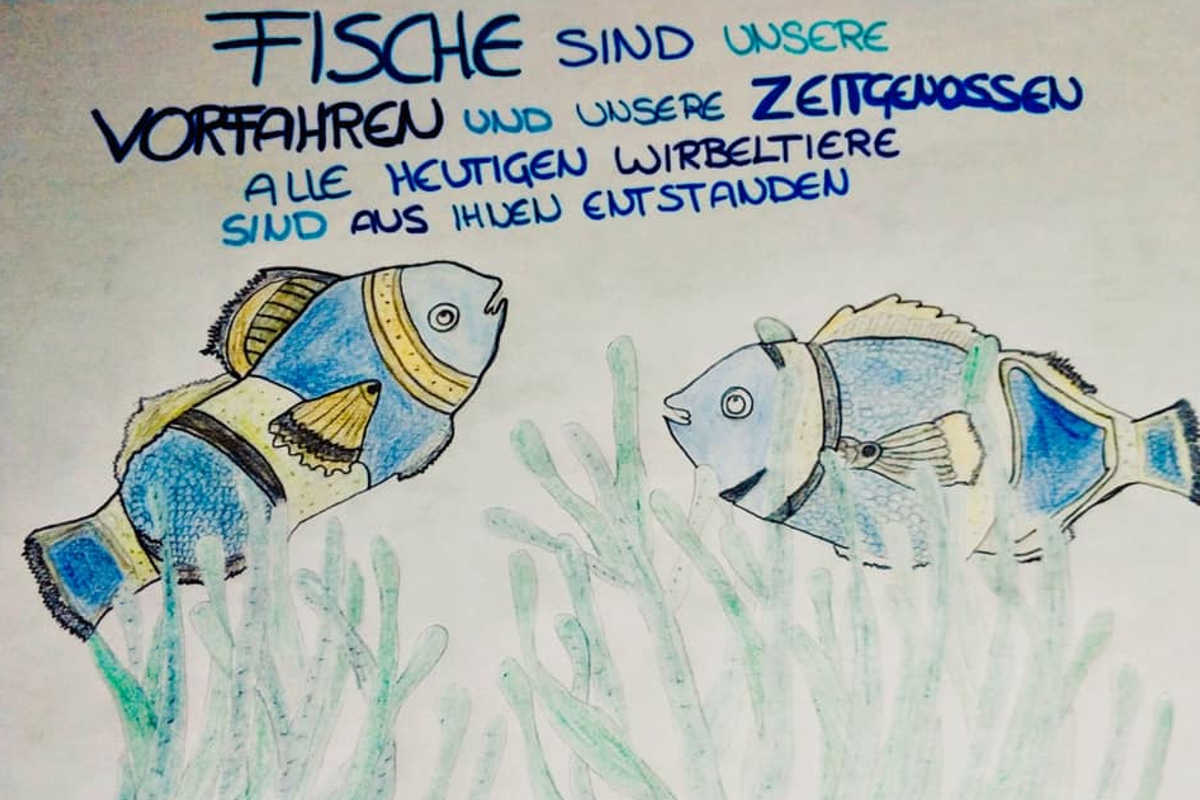 FISCHE SIND UNSERE
VORFAHREN UND UNSERE ZEITGENOSSEN
ALLE HEUTIGEN WIRBELTIERE
SIND AUS IHNEN ENTSTANDEN